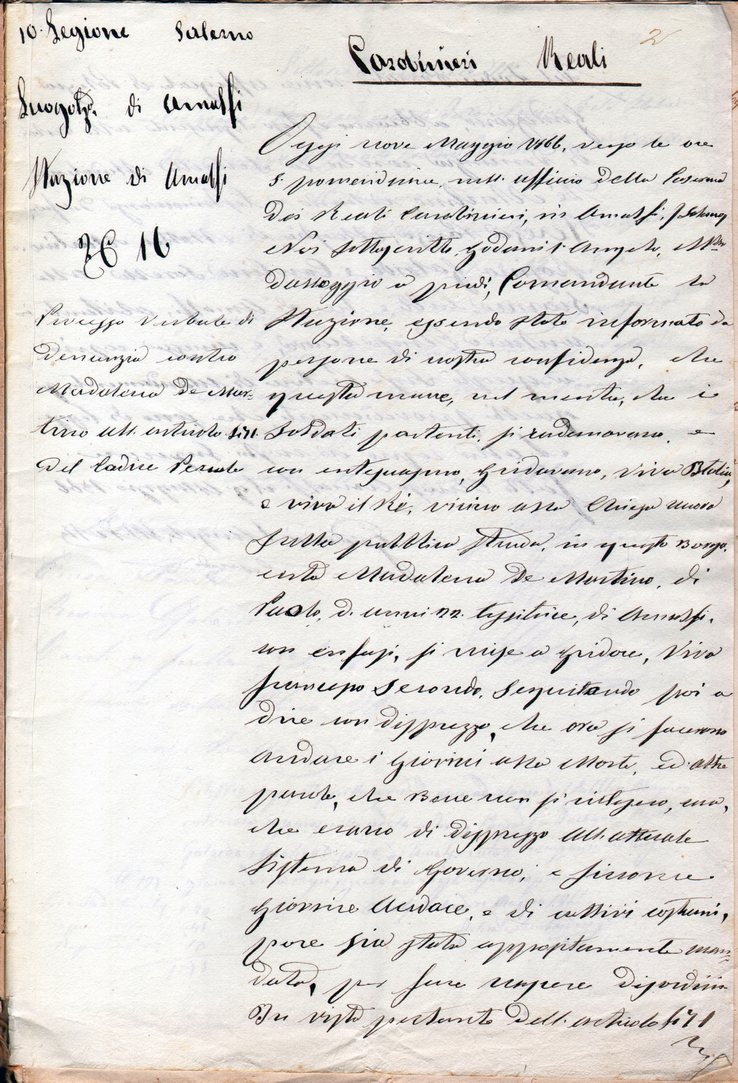 2
10. Legione Salerno
Luogotza. di Amalfi
Stazione di Amalfi
N 16
Processo Verbale di
denunzia contro
Madalena De Mar-
tino all'articolo 471
del Codice Penale
Carabinieri Reali
Oggi nove Maggio 1866, verso le ore
5 pomeridiane, nell'ufficio della Caserma
dei Reali Carabinieri, in Amalfi,
Noi sottoscritto Angelo,
a piedi, Comandante la
Stazione, essendo stato informato da
persone di nostra confidenza, che
questa mane, nel mentre, che i
soldati partenti, si radunavano, e
con entusiasmo, gridavano, viva Italia,
e viva il Rè, vicino alla Chiesa nuova
sulla pubblica strada, in questo Borgo,
certa Madalena De Martino, di
Paolo, d'anni 22 tessitrice, di Amalfi,
con enfasi, si mise a gridare, Viva
Francesco Secondo, seguitando poi a
dire con disprezzo, che ora si facevano
andare i Giovini alla Morte, ed altre
parole, che Bene non si intesero, ma,
che erano di disprezzo all'attuale
Sistema di Governo, e siccome
Giovine Audace, e di cattivi costumi,
pare sia stata appositamente man-
data, per fare nascere disordini
In vista pertanto dell'articolo 471